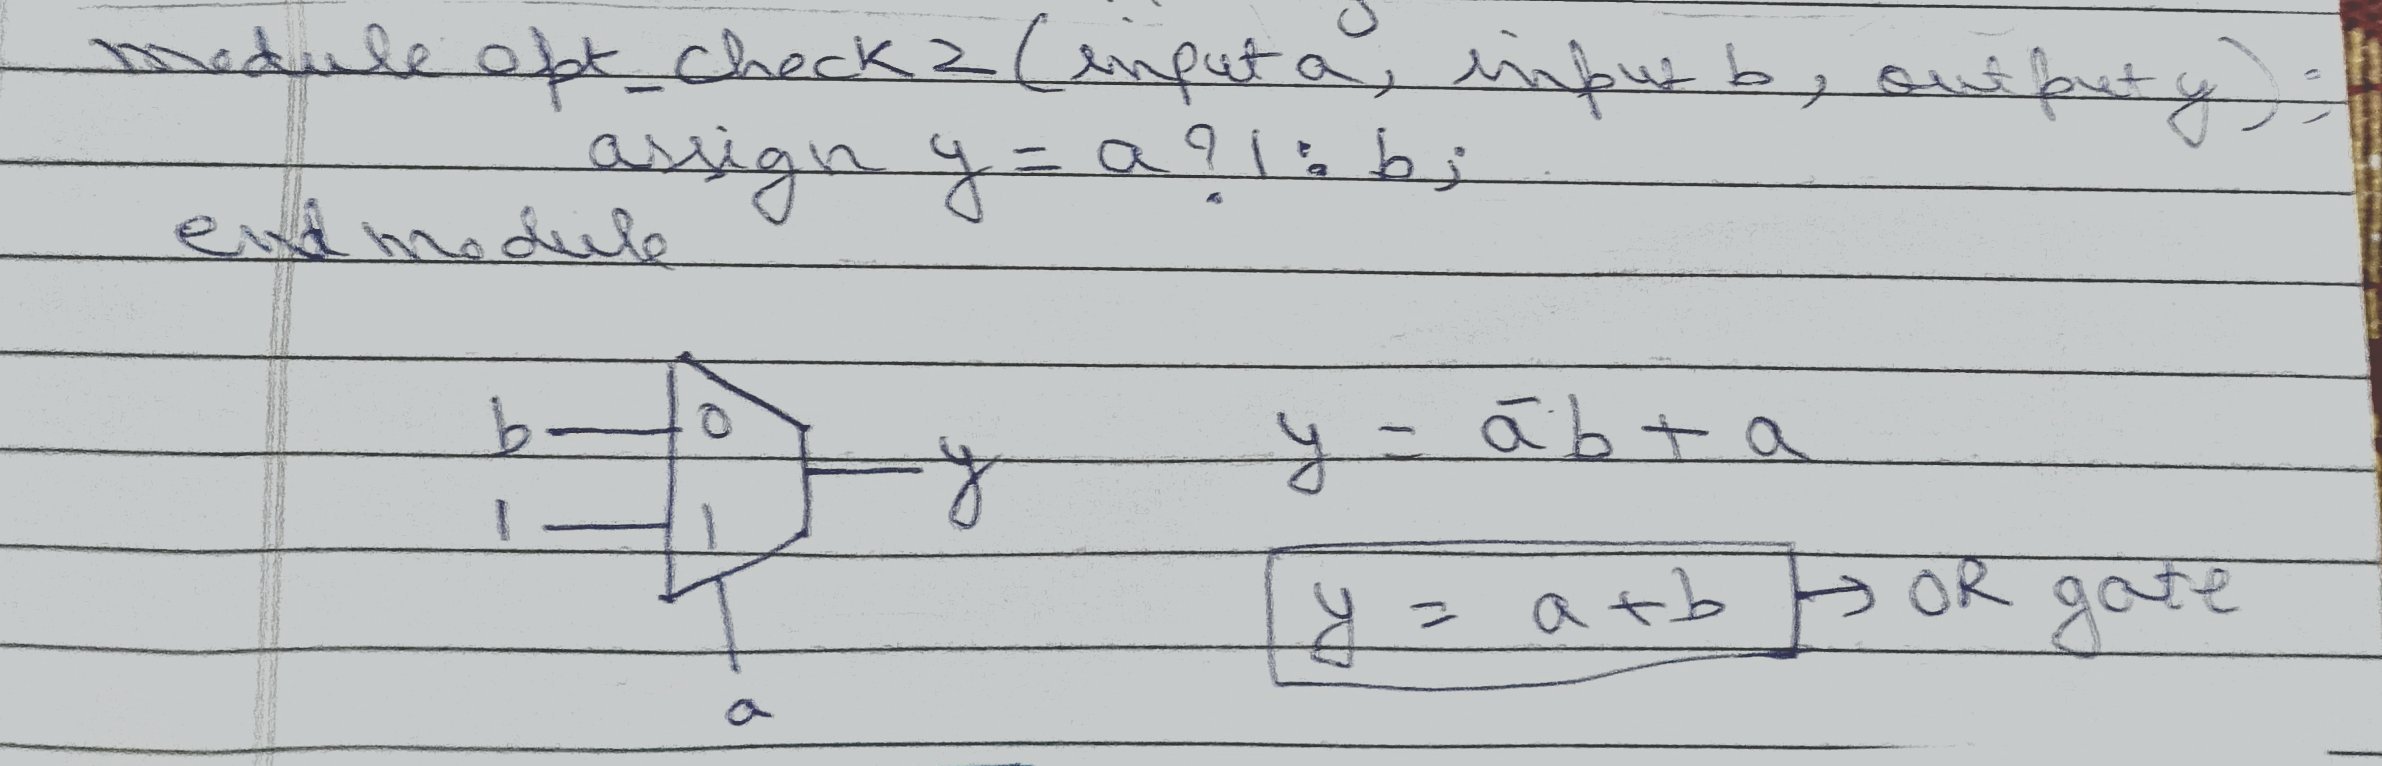 module opt_check2 (input a, input b, output y);
assign y = a ? 1 : b;
endmodule
b 0 y
1 1
a
y = āb + a
y = a + b → OR gate